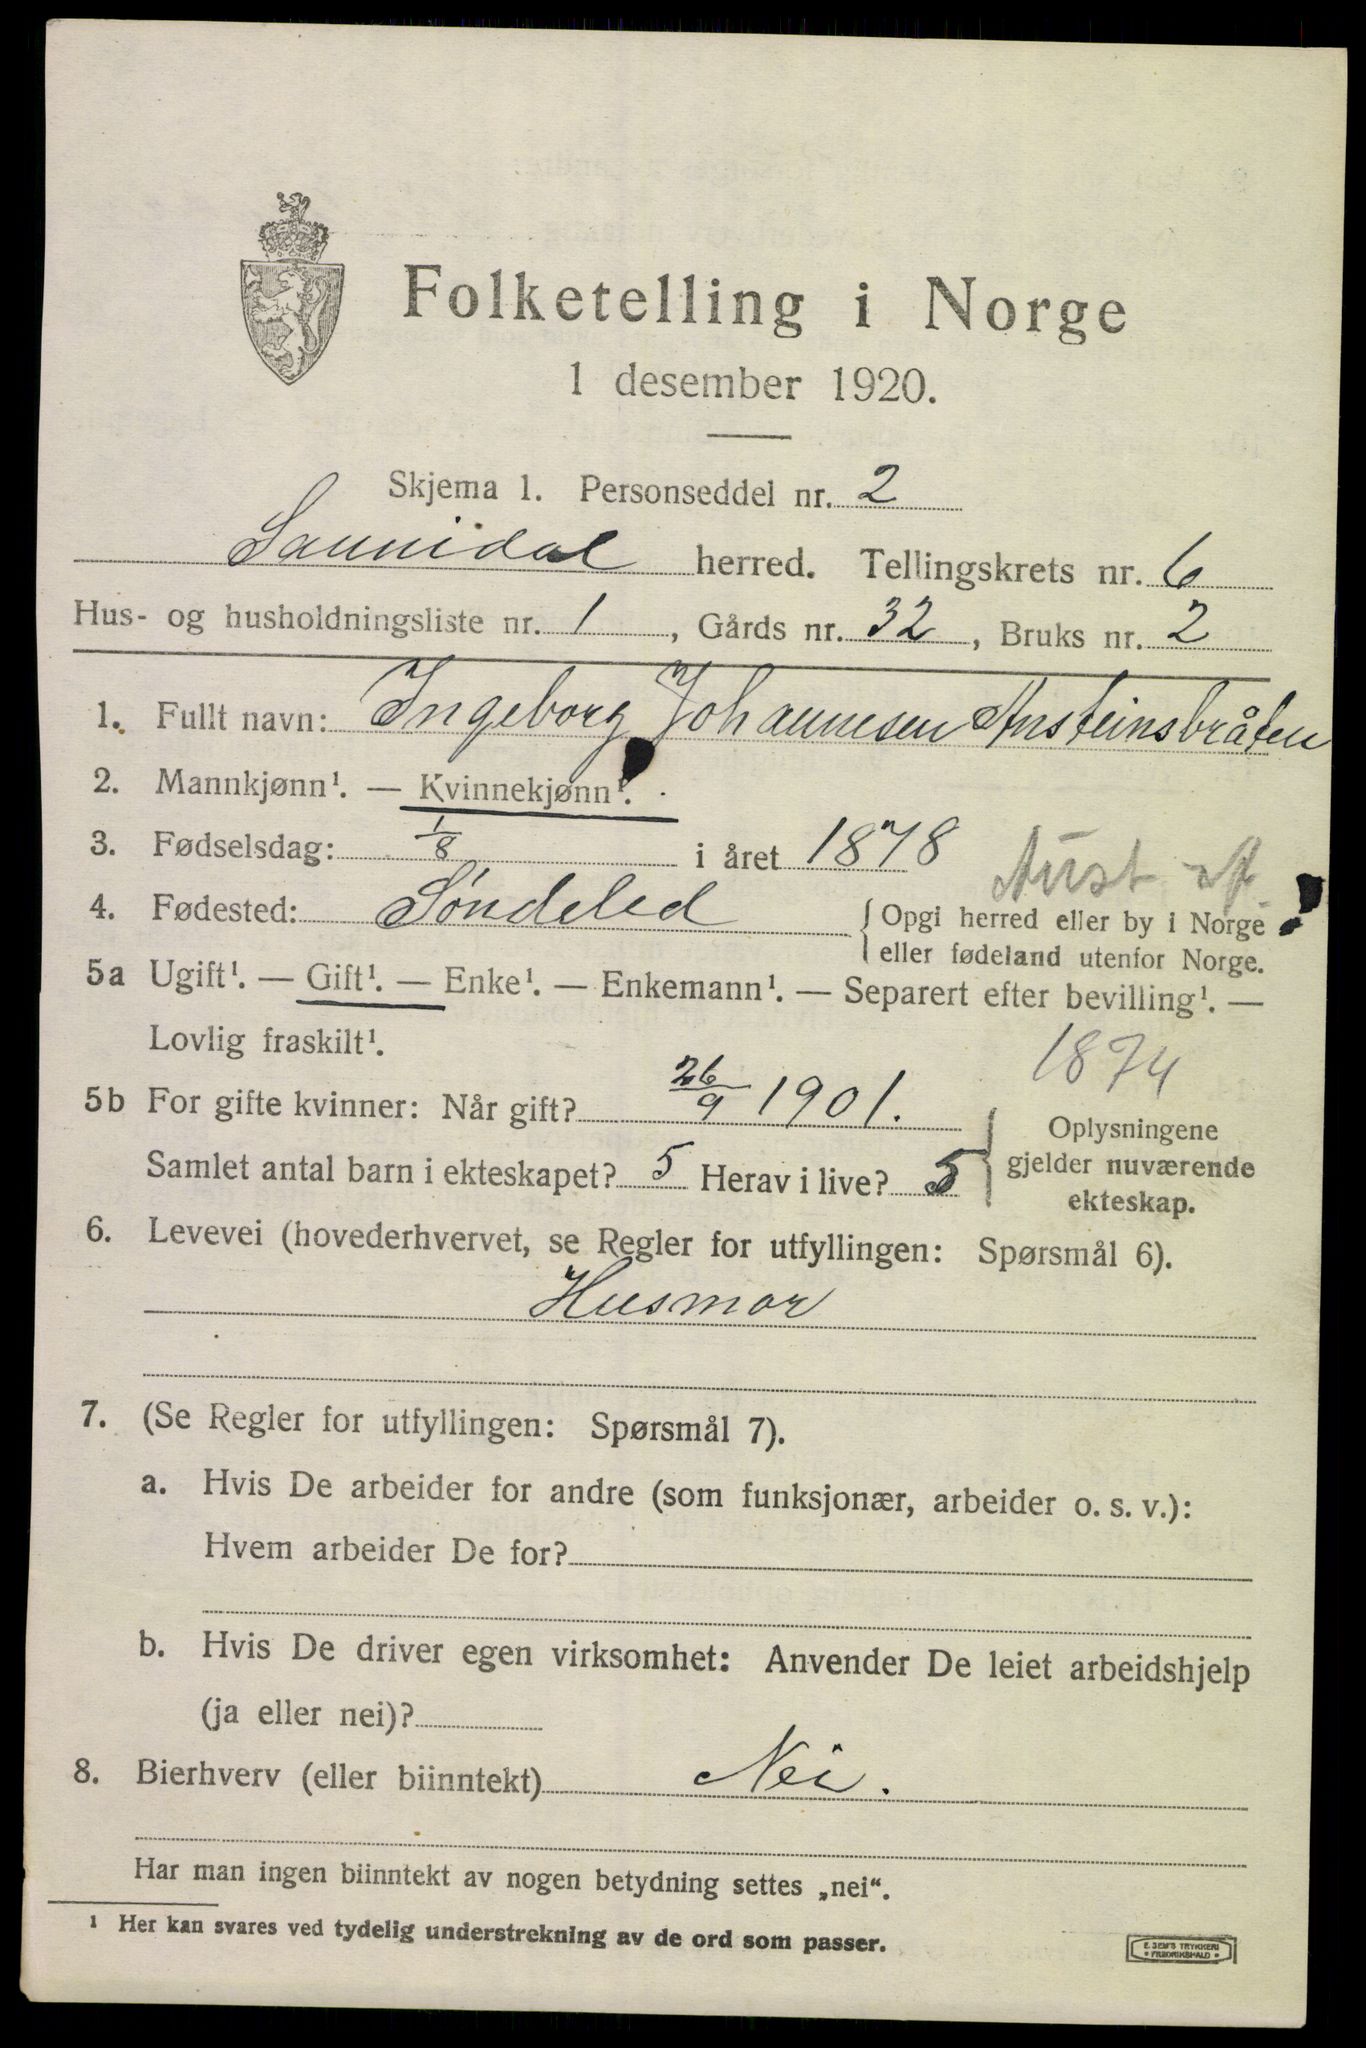 Folketelling i Norge
1 desember 1920.
Skjema 1. Personseddel nr. 2
Sannidal herred. Tellingskrets nr. 6
Hus- og husholdningsliste nr. 1, Gårds nr. 32, Bruks nr. 2
1. Fullt navn: Ingeborg Johannesen Ansteinsbråten
2. Mannkjønn¹. — Kvinnekjønn¹.
3. Fødselsdag: 1/8 i året 1878
Aust ag.
4. Fødested: Søndeled { Opgi herred eller by i Norge
eller fødeland utenfor Norge.
5a Ugift¹. — Gift¹. — Enke¹. — Enkemann¹. — Separert efter bevilling¹. —
Lovlig fraskilt¹.
1874
5b For gifte kvinner: Når gift? 26/9 1901.
Samlet antal barn i ekteskapet? 5 Herav i live? 5
Oplysningene
gjelder nuværende
ekteskap.
6. Levevei (hovederhvervet, se Regler for utfyllingen: Spørsmål 6).
Husmor
7. (Se Regler for utfyllingen: Spørsmål 7).
a. Hvis De arbeider for andre (som funksjonær, arbeider o. s. v.):
Hvem arbeider De for?
b. Hvis De driver egen virksomhet: Anvender De leiet arbeidshjelp
(ja eller nei)?
8. Bierhverv (eller biinntekt) Nei.
Har man ingen biinntekt av nogen betydning settes „nei“.
¹ Her kan svares ved tydelig understrekning av de ord som passer.
E. SEM'S TRYKKERI
FREDRIKSHALD